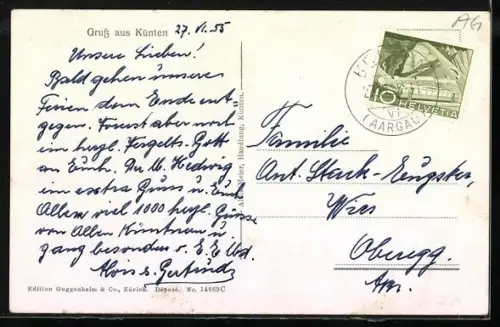 Gruß aus Künten 27. VI. 55
Unsere Lieben!
Bald gehen unsere
Ferien dem Ende ent
gegen. Zuerst aber noch
ein herzl. Vergelts Gott
an Euch. Der M. Hedwig
ein extra Gruss u. Euch
Allen viel 1000 hrzl. Grüsse
von Allen u.
ganz besonders v. E. E. Ubd.
Alois & Gertrud
Edition Guggenheim & Co., Zürich. Dépose. No. 14669C
Meier, Handlung, Künten.
AG
(AARGAU)
10 HELVETIA
Familie
Ant. Stark-Eugster,
Wies
Oberegg.